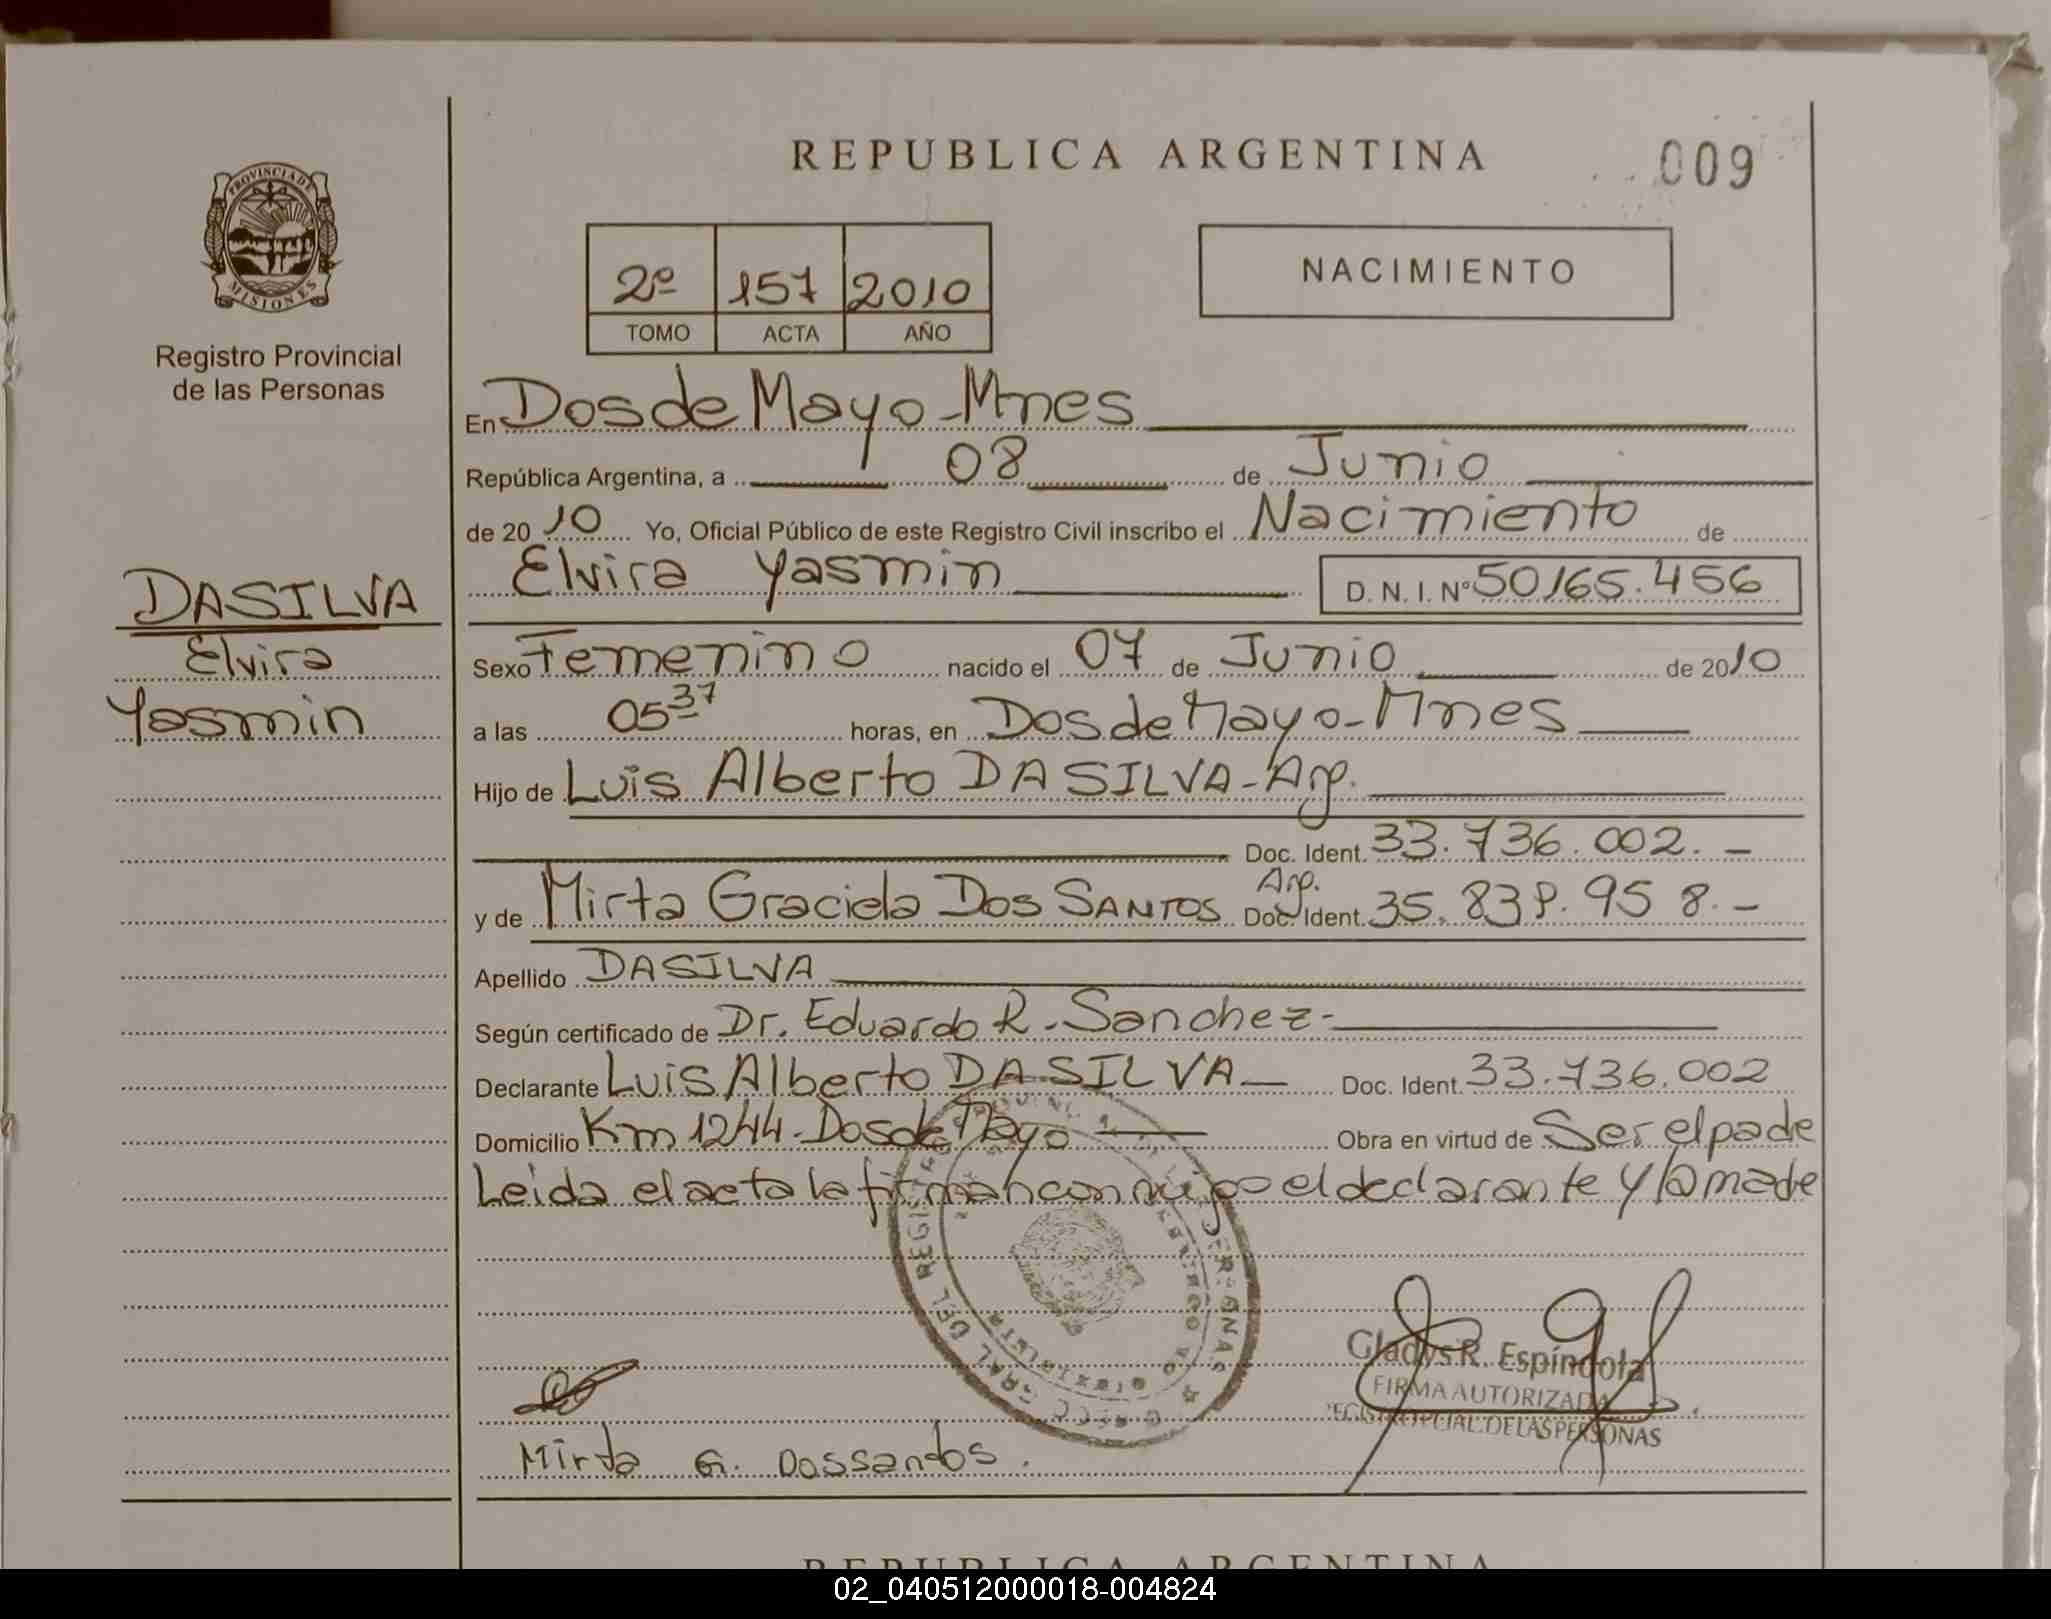 REPUBLICA ARGENTINA
009
PROVINCIA DE
MISIONES
Registro Provincial
de las Personas
2º 157 2010
TOMO ACTA AÑO
NACIMIENTO
En Dos de Mayo - Mnes
República Argentina, a 08 de Junio
de 2010 Yo, Oficial Público de este Registro Civil inscribo el Nacimiento de
Elvira Yasmin D.N.I.Nº 50165.456
DASILVA
Elvira
Yasmin
Sexo Femenino nacido el 07 de Junio de 2010
a las 05 37 horas, en Dos de Mayo - Mnes
Hijo de Luis Alberto DA SILVA - Arg.
Doc. Ident. 33.736.002. -
y de Mirta Graciela DOS SANTOS Arg. Doc. Ident. 35.838.958. -
Apellido DASILVA
Según certificado de Dr. Eduardo R. Sanchez -
Declarante Luis Alberto DA SILVA Doc. Ident. 33.736.002
Domicilio Km 1244 - Dos de Mayo Obra en virtud de Ser el pade
Leida el acta la firman conmigo el declarante y la made
GRAL DEL REGIS
Gladys R. Espíndola
FIRMA AUTORIZADA
REGISTRO PCIAL. DE LAS PERSONAS
Mirta G. Dossantos.
REPUBLICA ARGENTINA
02_040512000018-004824